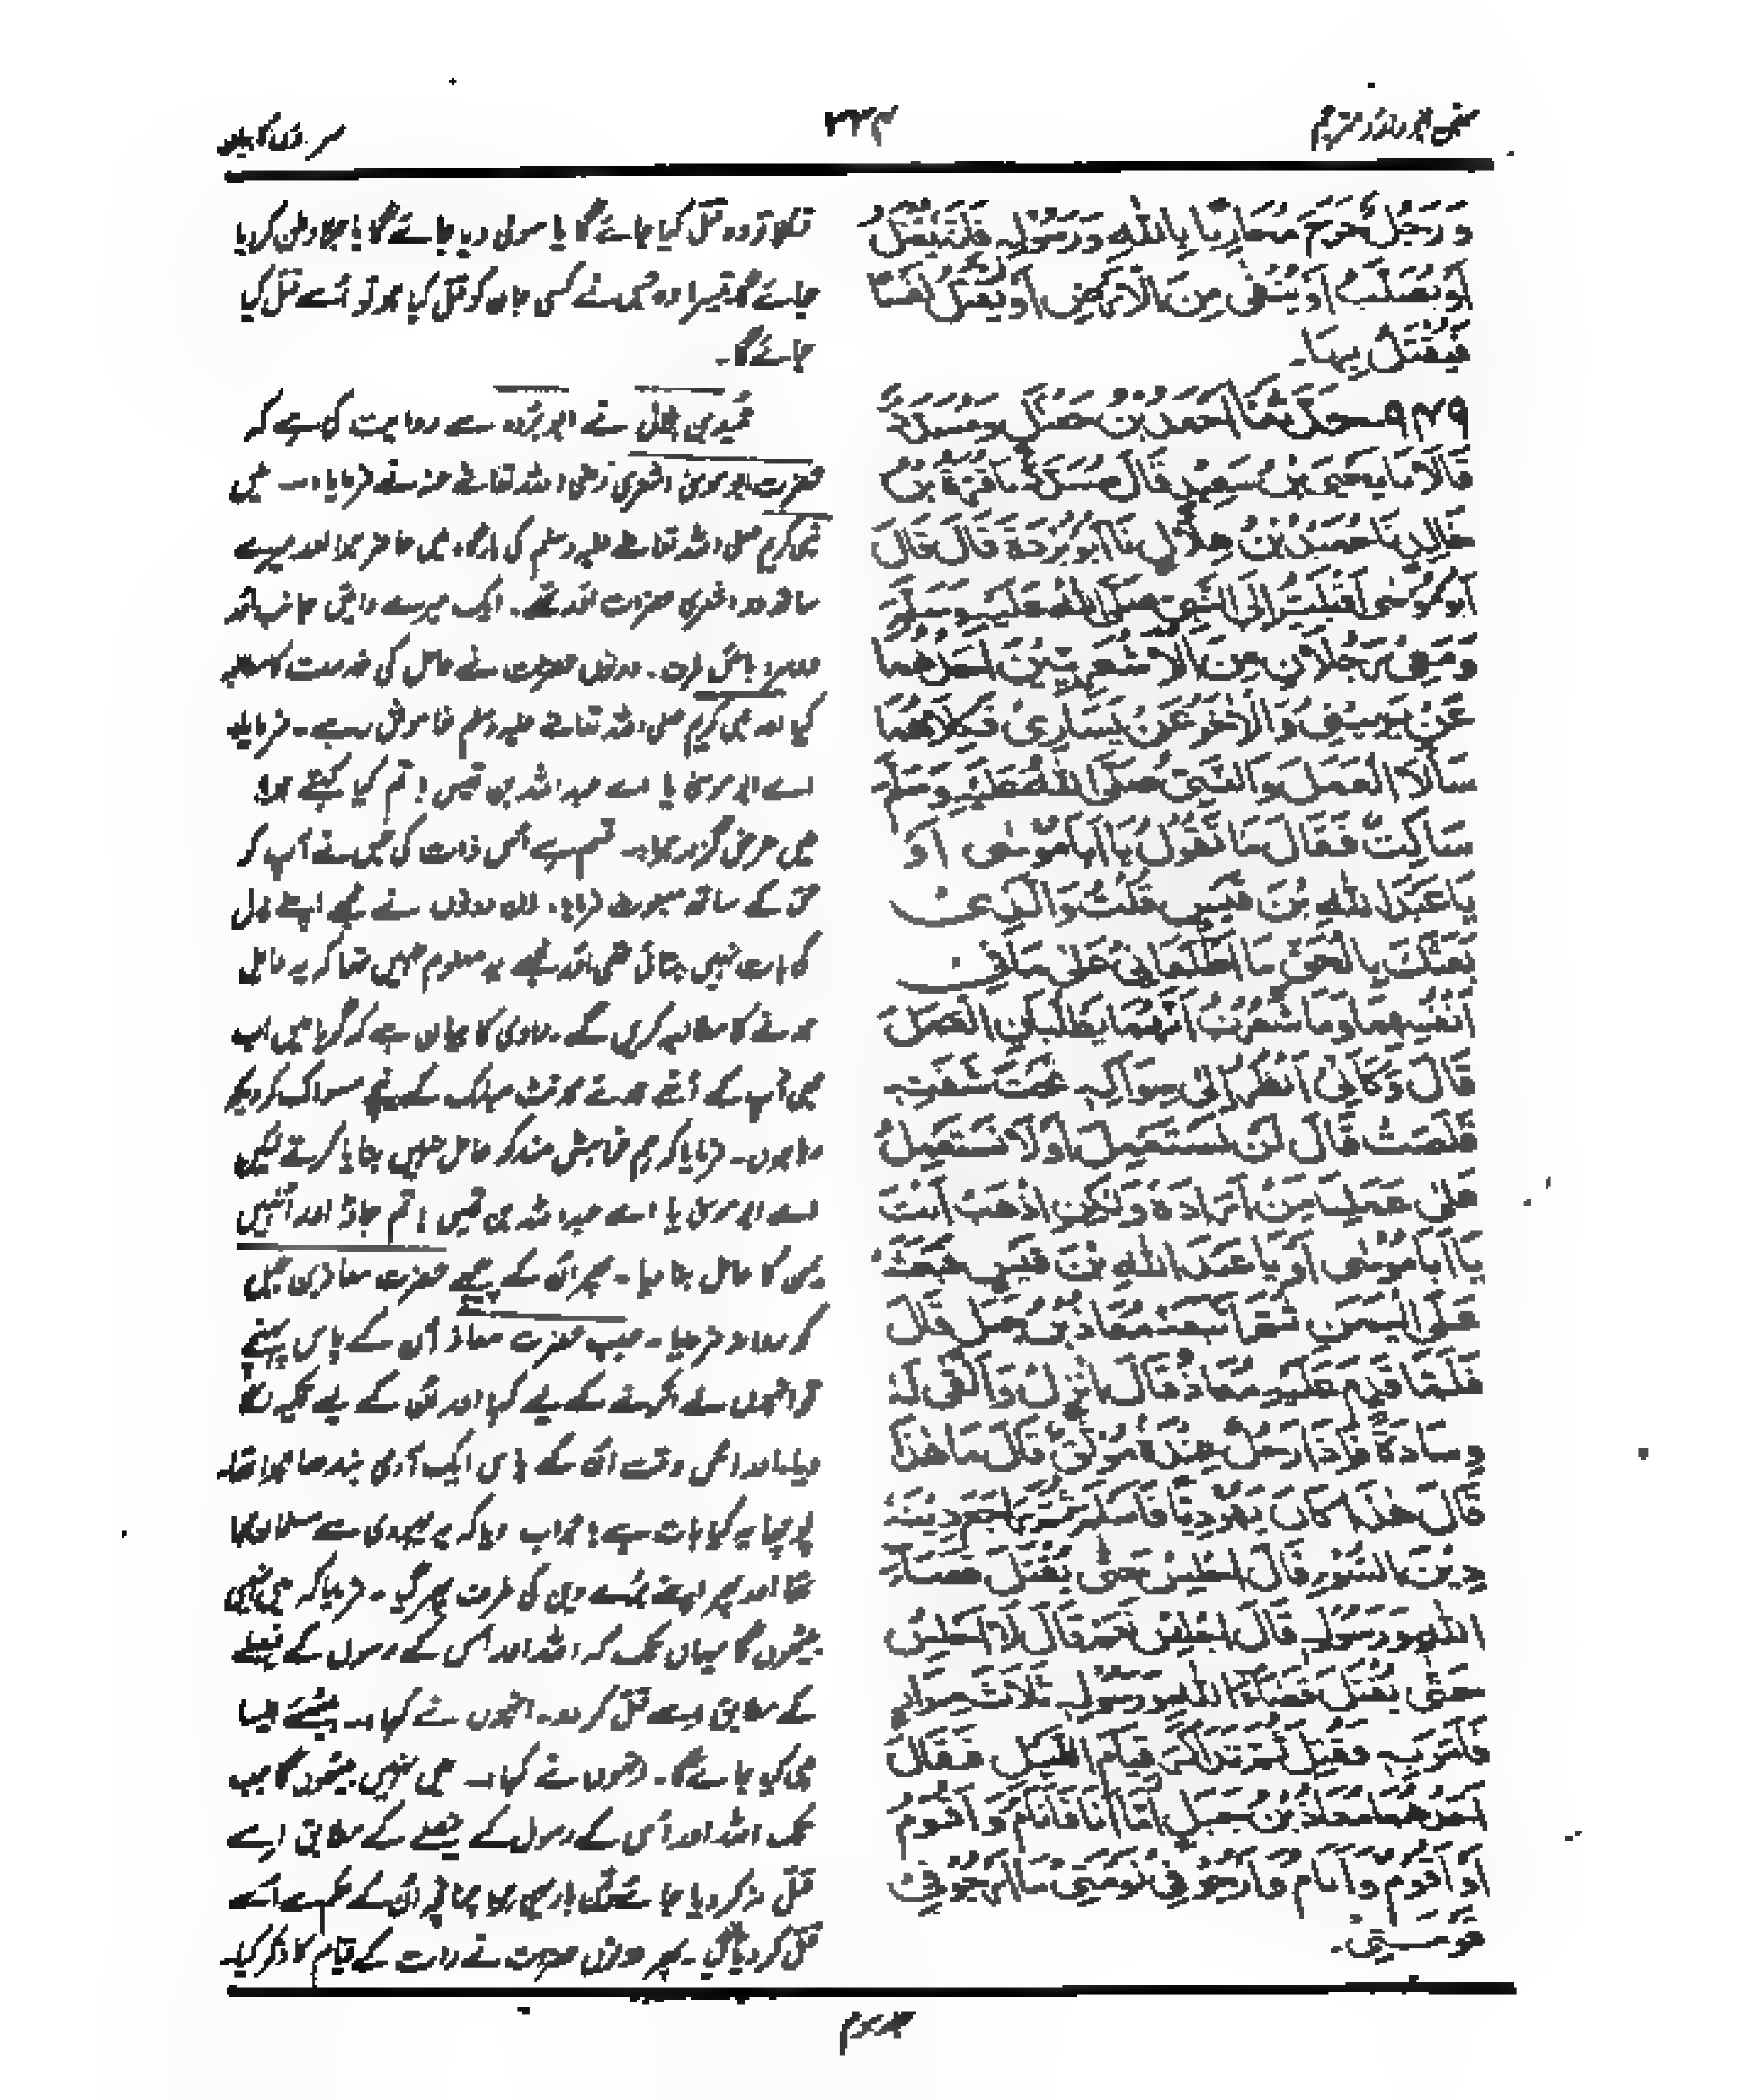 سنن ابوداؤد مترجم
۳۳۴
سزاؤں کا بیان
وَرَجُلٌ خَرَجَ مُحَارِبًا بِاللّٰهِ وَرَسُوْلِهٖ فَاِنَّهٗ يُقْتَلُ
اَوْ يُصْلَبُ اَوْ يُنْفٰى مِنَ الْاَرْضِ اَوْ يَقْتُلُ نَفْسًا
فَيُقْتَلُ بِهَا۔
۹۴۹ ـ حَدَّثَنَا اَحْمَدُ بْنُ حَنْبَلٍ وَمُسَدَّدٌ
قَالَا نَا يَحْيَى بْنُ سَعِيْدٍ قَالَ مُسَدَّدٌ نَا قُرَّةُ بْنُ
خَالِدٍ نَا حُمَيْدُ بْنُ هِلَالٍ نَا اَبُوْ بُرْدَةَ قَالَ قَالَ
اَبُوْ مُوْسٰى اَقْبَلْتُ اِلَى النَّبِيِّ صَلَّى اللّٰهُ عَلَيْهِ وَسَلَّمَ
وَمَعِيَ رَجُلَانِ مِنَ الْاَشْعَرِيِّيْنَ اَحَدُهُمَا
عَنْ يَمِيْنِيْ وَالْاٰخَرُ عَنْ يَسَارِيْ فَكِلَاهُمَا
سَاَلَا الْعَمَلَ وَالنَّبِيُّ صَلَّى اللّٰهُ عَلَيْهِ وَسَلَّمَ
سَاكِتٌ فَقَالَ مَا تَقُوْلُ يَا اَبَا مُوْسٰى اَوْ
يَا عَبْدَ اللّٰهِ بْنَ قَيْسٍ قُلْتُ وَالَّذِيْ
بَعَثَكَ بِالْحَقِّ مَا اَطْلَعَانِيْ عَلٰى مَا فِيْ
اَنْفُسِهِمَا وَمَا شَعَرْتُ اَنَّهُمَا يَطْلُبَانِ الْعَمَلَ
قَالَ وَكَاَنِّيْ اَنْظُرُ اِلٰى سِوَاكِهٖ تَحْتَ شَفَتِهٖ
قَلَصَتْ قَالَ لَنْ نَسْتَعْمِلَ اَوْ لَا نَسْتَعْمِلُ
عَلٰى عَمَلِنَا مَنْ اَرَادَهٗ وَلٰكِنِ اذْهَبْ اَنْتَ
يَا اَبَا مُوْسٰى اَوْ يَا عَبْدَ اللّٰهِ بْنَ قَيْسٍ فَبَعَثَهٗ
عَلَى الْيَمَنِ ثُمَّ اَتْبَعَهٗ مُعَاذُ بْنُ جَبَلٍ قَالَ
فَلَمَّا قَدِمَ عَلَيْهِ مُعَاذٌ قَالَ انْزِلْ وَاَلْقٰى لَهٗ
وِسَادَةً فَاِذَا رَجُلٌ عِنْدَهٗ مُوْثَقٌ قَالَ مَا هٰذَا
قَالَ هٰذَا كَانَ يَهُوْدِيًّا فَاَسْلَمَ ثُمَّ رَاجَعَ دِيْنَهٗ
دِيْنَ السُّوْءِ قَالَ لَا اَجْلِسُ حَتّٰى يُقْتَلَ قَضَاءُ
اللّٰهِ وَرَسُوْلِهٖ قَالَ اجْلِسْ نَعَمْ قَالَ لَا اَجْلِسُ
حَتّٰى يُقْتَلَ قَضَاءُ اللّٰهِ وَرَسُوْلِهٖ ثَلَاثَ مِرَارٍ
فَاَمَرَ بِهٖ فَقُتِلَ ثُمَّ تَذَاكَرَا قِيَامَ اللَّيْلِ فَقَالَ
اَحَدُهُمَا مُعَاذُ بْنُ جَبَلٍ اَمَّا اَنَا فَاَنَامُ وَاَقُوْمُ
اَوْ اَقُوْمُ وَاَنَامُ وَاَرْجُوْ فِيْ نَوْمَتِيْ مَا اَرْجُوْ فِيْ
قَوْمَتِيْ۔
نکلا تو وہ قتل کیا جائے گا یا سولی دیا جائے گا یا جلاوطن کر دیا
جائے گا تیسرا وہ جس نے کسی جان کو قتل کیا ہو تو اُسے قتل کیا
جائے گا۔
حُمید بن ہلال نے ابو بُردہ سے روایت کی ہے کہ
حضرت ابو موسیٰ اشعری رضی اللہ تعالٰے عنہ نے فرمایا:۔ میں
نبی کریم صلی اللہ تعالٰے علیہ وسلم کی بارگاہ میں حاضر ہوا اور میرے
ساتھ دو اشعری حضرات اور تھے۔ ایک میرے دائیں جانب اور
دوسرا بائیں طرف۔ دونوں حضرات نے عامل کی خدمت کا مطالبہ
کیا اور نبی کریم صلی اللہ تعالٰے علیہ وسلم خاموش رہے۔ فرمایا
اے ابو موسیٰ یا اے عبداللہ بن قیس! تم کیا کہتے ہو؟
میں عرض گزار ہوا:۔ قسم ہے اُس ذات کی جس نے آپ کو
حق کے ساتھ مبعوث فرمایا۔ ان دونوں نے مجھے اپنے دل
کی بات نہیں بتائی تھی اور مجھے یہ معلوم نہیں تھا کہ یہ عامل
ہونے کا مطالبہ کریں گے۔ راوی کا بیان ہے کہ گویا میں اب
بھی آپ کے اُٹھے ہوئے ہونٹ مبارک کے نیچے مسواک کو دیکھ
رہا ہوں۔ فرمایا کہ ہم خواہش مند کو عامل نہیں بنایا کرتے لیکن
اے ابو موسیٰ یا اے عبداللہ بن قیس! تم جاؤ اور اُنہیں
یمن کا عامل بنا دیا۔ پھر اُن کے پیچھے حضرت معاذ بن جبل
کو روانہ فرمایا۔ جب حضرت معاذ اُن کے پاس پہنچے
تو انہوں نے اُترنے کے لیے کہا اور اُن کے لیے تکیہ لگا
دیا۔ اور اس وقت اُن کے پاس ایک آدمی بندھا ہوا تھا۔
پوچھا یہ کیا بات ہے؟ جواب دیا کہ یہ یہودی سے مسلمان ہوا
تھا اور پھر اپنے بُرے دین کی طرف پھر گیا۔ فرمایا کہ میں نہیں
بیٹھوں گا یہاں تک کہ اللہ اور اُس کے رسول کے فیصلے
کے مطابق اسے قتل کر دو۔ انہوں نے کہا:۔ بیٹھئے ایسا
ہی کیا جائے گا۔ انہوں نے کہا:۔ میں نہیں بیٹھوں گا جب
تک اللہ اور اُس کے رسول کے فیصلے کے مطابق اسے
قتل نہ کر دیا جائے تین بار یہی کہا چنانچہ اُن کے حکم سے اُسے
قتل کر دیا گیا۔ پھر دونوں حضرات نے رات کے قیام کا ذکر کیا۔
جلد سوم